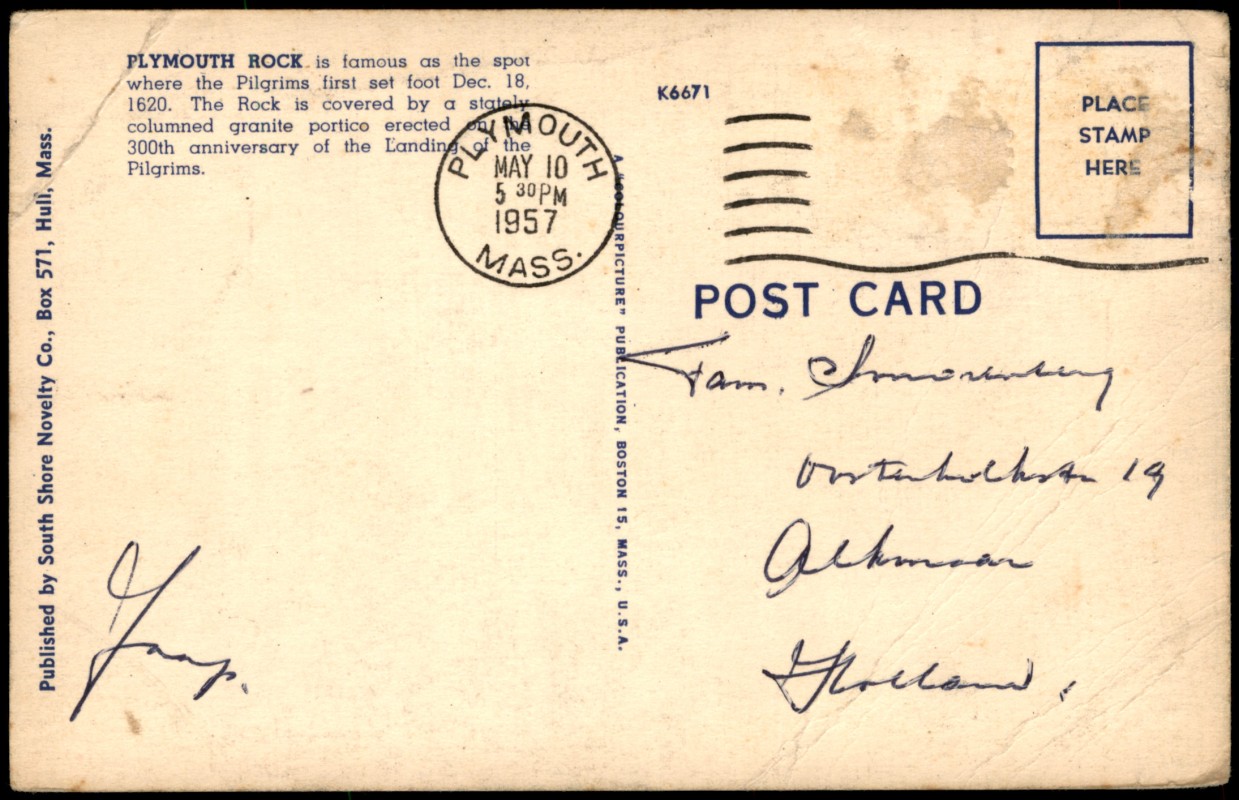 PLYMOUTH ROCK is famous as the spot
where the Pilgrims first set foot Dec. 18,
1620. The Rock is covered by a stately
columned granite portico erected on the
300th anniversary of the Landing of the
Pilgrims.
PLYMOUTH
MAY 10
5 30 PM
1957
MASS.
K6671
PLACE
STAMP
HERE
Published by South Shore Novelty Co., Box 571, Hull, Mass.
A "COLOURPICTURE" PUBLICATION, BOSTON 15, MASS., U.S.A.
POST CARD
Fam.
19
Alkmaar
Holland.
Jaap.